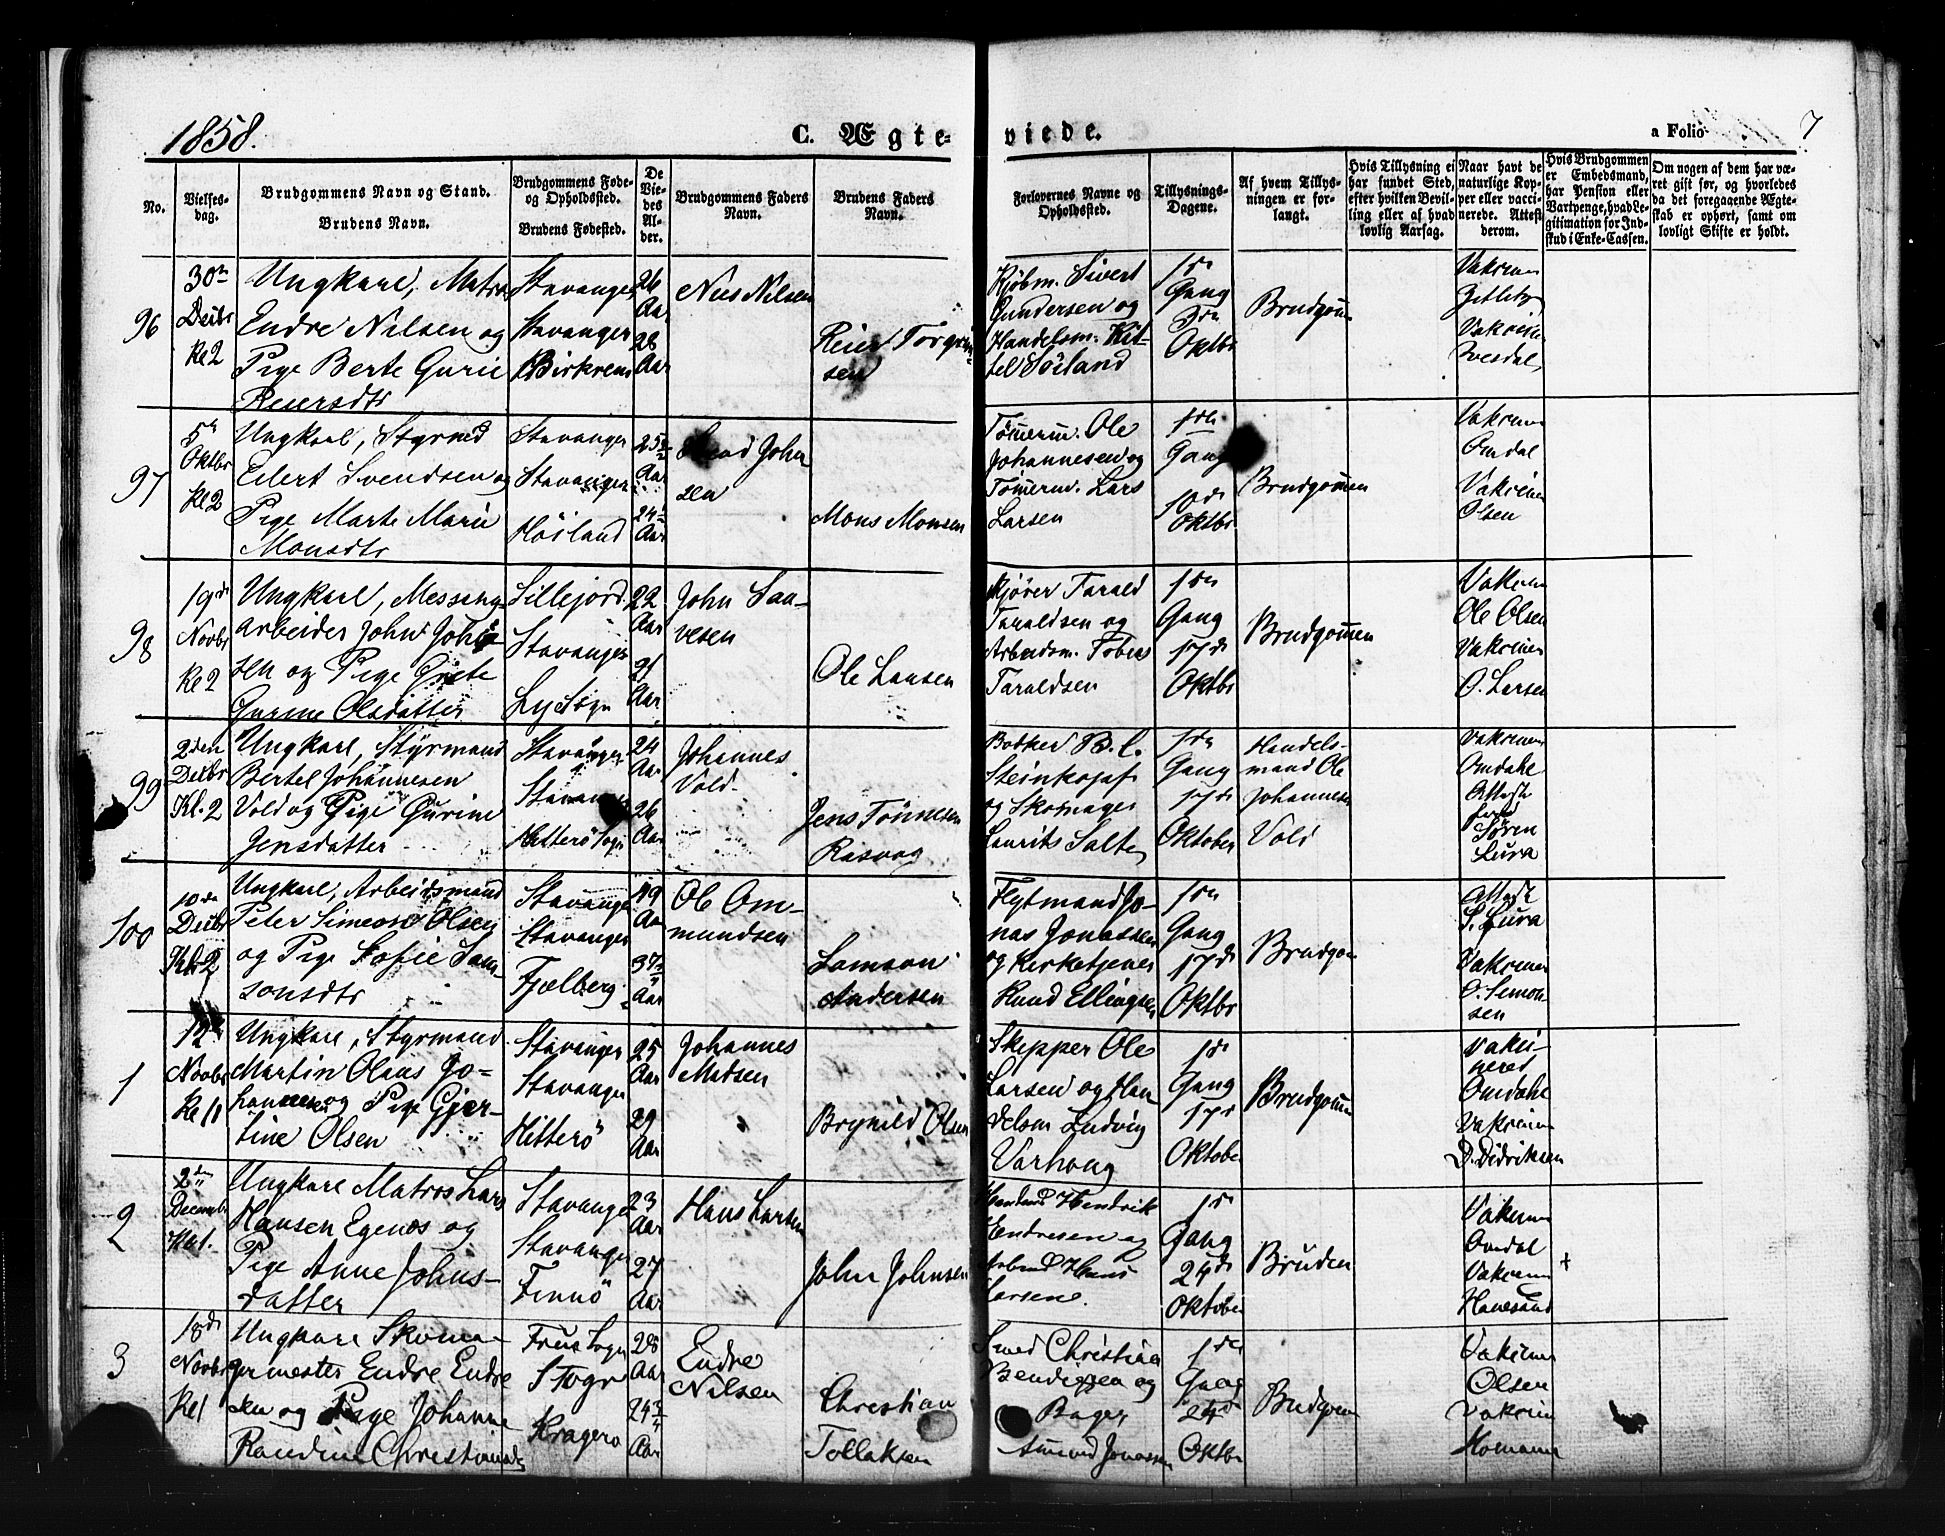 1858.
C. Ægteviede.
a Folio 7
No.
Vielsesdag.
Brudgommens Navn og Stand.
Brudens Navn.
Brudgommens Føde- og Opholdssted.
Brudens Fødested.
De Viedes Alder.
Brudgommens Faders Navn.
Brudens Faders Navn.
Forlovernes Navne og Opholdssted.
Tillysnings-Dagene.
Af hvem Tillysningen er forlangt.
Hvis Tillysning ei har fundet Sted, efter hvilken Bevilling eller af hvad lovlig Aarsag.
Naar havt de naturlige Kopper eller vaccinerede. Attest derom.
Hvis Brudgommen er Embedsmand, har Pension eller Vartpenge, hvad Legitimation for Indskud i Enke-Cassen.
Om nogen af dem har været gift før, og hvorledes da det foregaaende Ægteskab er ophørt, samt om lovligt Skifte er holdt.
96
30
Decbr
Kl 2
Ungkarl, Matros
Endre Nilsen og
Pige Berte Gurie
Reiersdtr
Stavanger
Stavanger
Birkrem
26
Aar
28
Aar
Nils Nilsen
Reier Torgrim-
sen
Kjøbm. Sivert
Gundersen og
Handelsm. Kit-
tel Søiland
1ste
Gang
3die
Oktbr
Brudgom
Vakcin
Vakcin
97
5
Oktbr
Kl 2
Ungkarl, Styrmd
Eilert Svendsen og
Pige Marte Marie
Monsdtr
Stavanger
Stavanger
Høiland
25
Aar
24
Aar
Svend John
sen
Mons Monsen
Tømerm. Ole
Johannesen og
Tømerm. Lars
Larsen
1ste
Gang
10de
Oktbr
Brudgommen
Vakcin
Omdal
Vakcin
Olsen
98
19de
Novbr
Kl 2
Ungkarl, Messing-
arbeider John John
sen og Pige Grete
Gurine Olsdatter
Sillejord
Stavanger
Lye Sogn
22
Aar
21
Aar
John Sau-
vesen
Ole Larsen
Kjører Tarald
Taraldsen og
Arbeidsm. Tobias
Taraldsen
1ste
Gang
17de
Oktbr
Brudgommen
Vakcin
Ole Olsen
Vakcin
O. Larsen
99
2den
Decbr
Kl. 2
Ungkarl, Styrmand
Bertel Johannesen
Vold og Pige Gurine
Jensdatter
Stavanger
Stavanger
Hitterø Sogn
24
Aar
26
Aar
Johannes
Vold
Jens Tønnesen
Rasvag
Bødker B. C.
Steinkopf
og Skomager
Laurits Salte
1ste
Gang
17de
Oktober
Handels-
mand Ole
Johannesen
Vold
Vakcin
Omdahl
Attest
fra
Søren
Lura
100
10de
Decbr
Kl. 2
Ungkarl, Arbeidsmand
Peter Simeon Olsen
og Pige Sofie Sam
sonsdtr
Stavanger
Stavanger
Fjelberg
49
Aar
37
Aar
Ole Om-
mundsen
Samson
Andersen
Flytmand Jo-
nas Jonassen
og Kirketjener
Knud Ellingsen
1ste
Gang
17de
Oktbr
Brudgom
Attest
S. Lura
Vakcin
O. Simon
sen
1
12
Novbr
Kl 11
Ungkarl, Styrmand
Martin Olaus Jo-
hannesen og Pige Gjer-
tine Olsen
Stavanger
Stavanger
Hitterø
25
Aar
29
Aar
Johannes
Madsen
Brynild Olsen
Skipper Ole
Larsen og Han
delsm Ludvig
Varhoug
1ste
Gang
17de
Oktober
Brudgommen
Vakci-
neret
Omdahl
Vakcin
D. Didriksen
2
2den
Decembr
Kl 1.
Ungkarl Matros Lars
Hansen Egenes og
Pige Anne Johns-
datter
Stavanger
Stavanger
Finnø
23
Aar
27
Aar
Hans Larsen
John Johnsen
Hendrik
Endresen og
Arbmd Hans
Larsen.
1ste
Gang
24de
Oktober
Bruden
Vakcin
Omdal
Vakcin
Hanesand
+
3
18de
Novbr
Kl 1
Ungkarl Skoma-
germester Endre Endre
sen og Pige Johanne
Randine Christiansd
Frue Sogn
S Togn
Kragerø
28
Aar
24 3/4
Aar
Endre
Nilsen
Christian
Tollaksen
Smed Christian
Bendixen og
Bager
Amund Jonassen
1ste
Gang
24de
Oktbr
Brudgom
Vakcin
Olsen
Vakcin
Homann